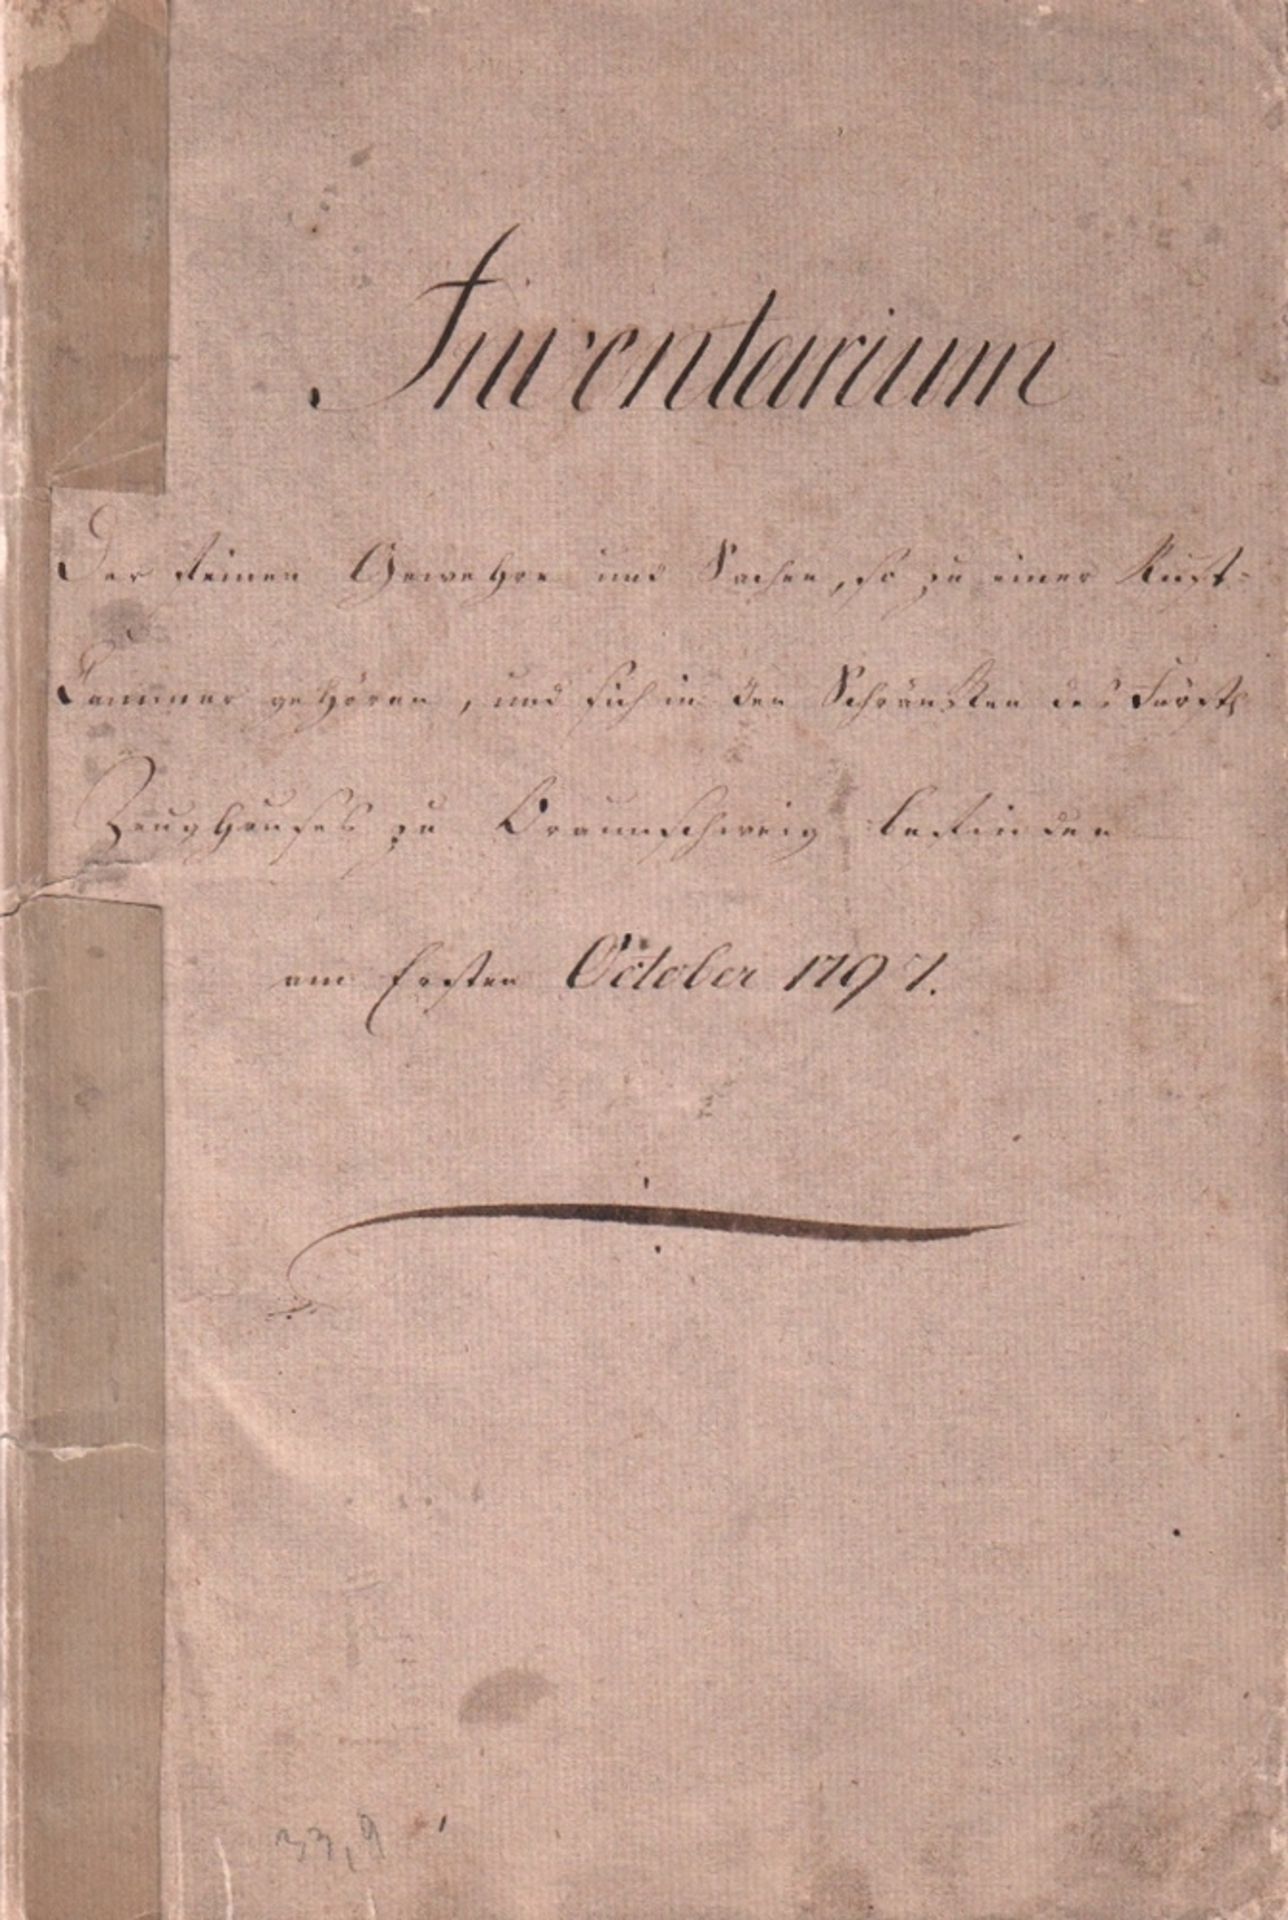 Inventarium
Der kleinen Gewehre und Sachen, so zu einer Rüst-
Cammer gehören, und sich in den Schräncken des Fürstl.
Zeughauses zu Braunschweig befinden
am Ersten October 1797.
33,9